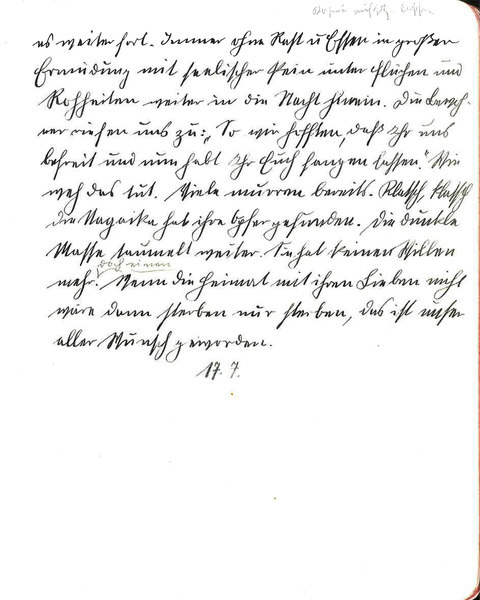 es weiter fort. Immer ohne Rast u Essen in großer
Ermüdung mit seelischer Pein unter Flüchen und
Rohheiten weiter in die Nacht hinein. Die Bewoh-
ner riefen uns zu: „So wir hofften, daß Ihr uns
befreit und nun habt Ihr Euch fangen lassen" Wie
weh das tut. Viele murren bereits. Klatsch, klatsch
die Nagaika hat ihre Opfer gefunden. Die dunkle
Masse taumelt weiter. Sie hat keinen Willen
doch einen
mehr. Wenn die Heimat mit ihren Lieben nicht
wäre dann sterben nur sterben, das ist unser
aller Wunsch geworden.
17. 7.